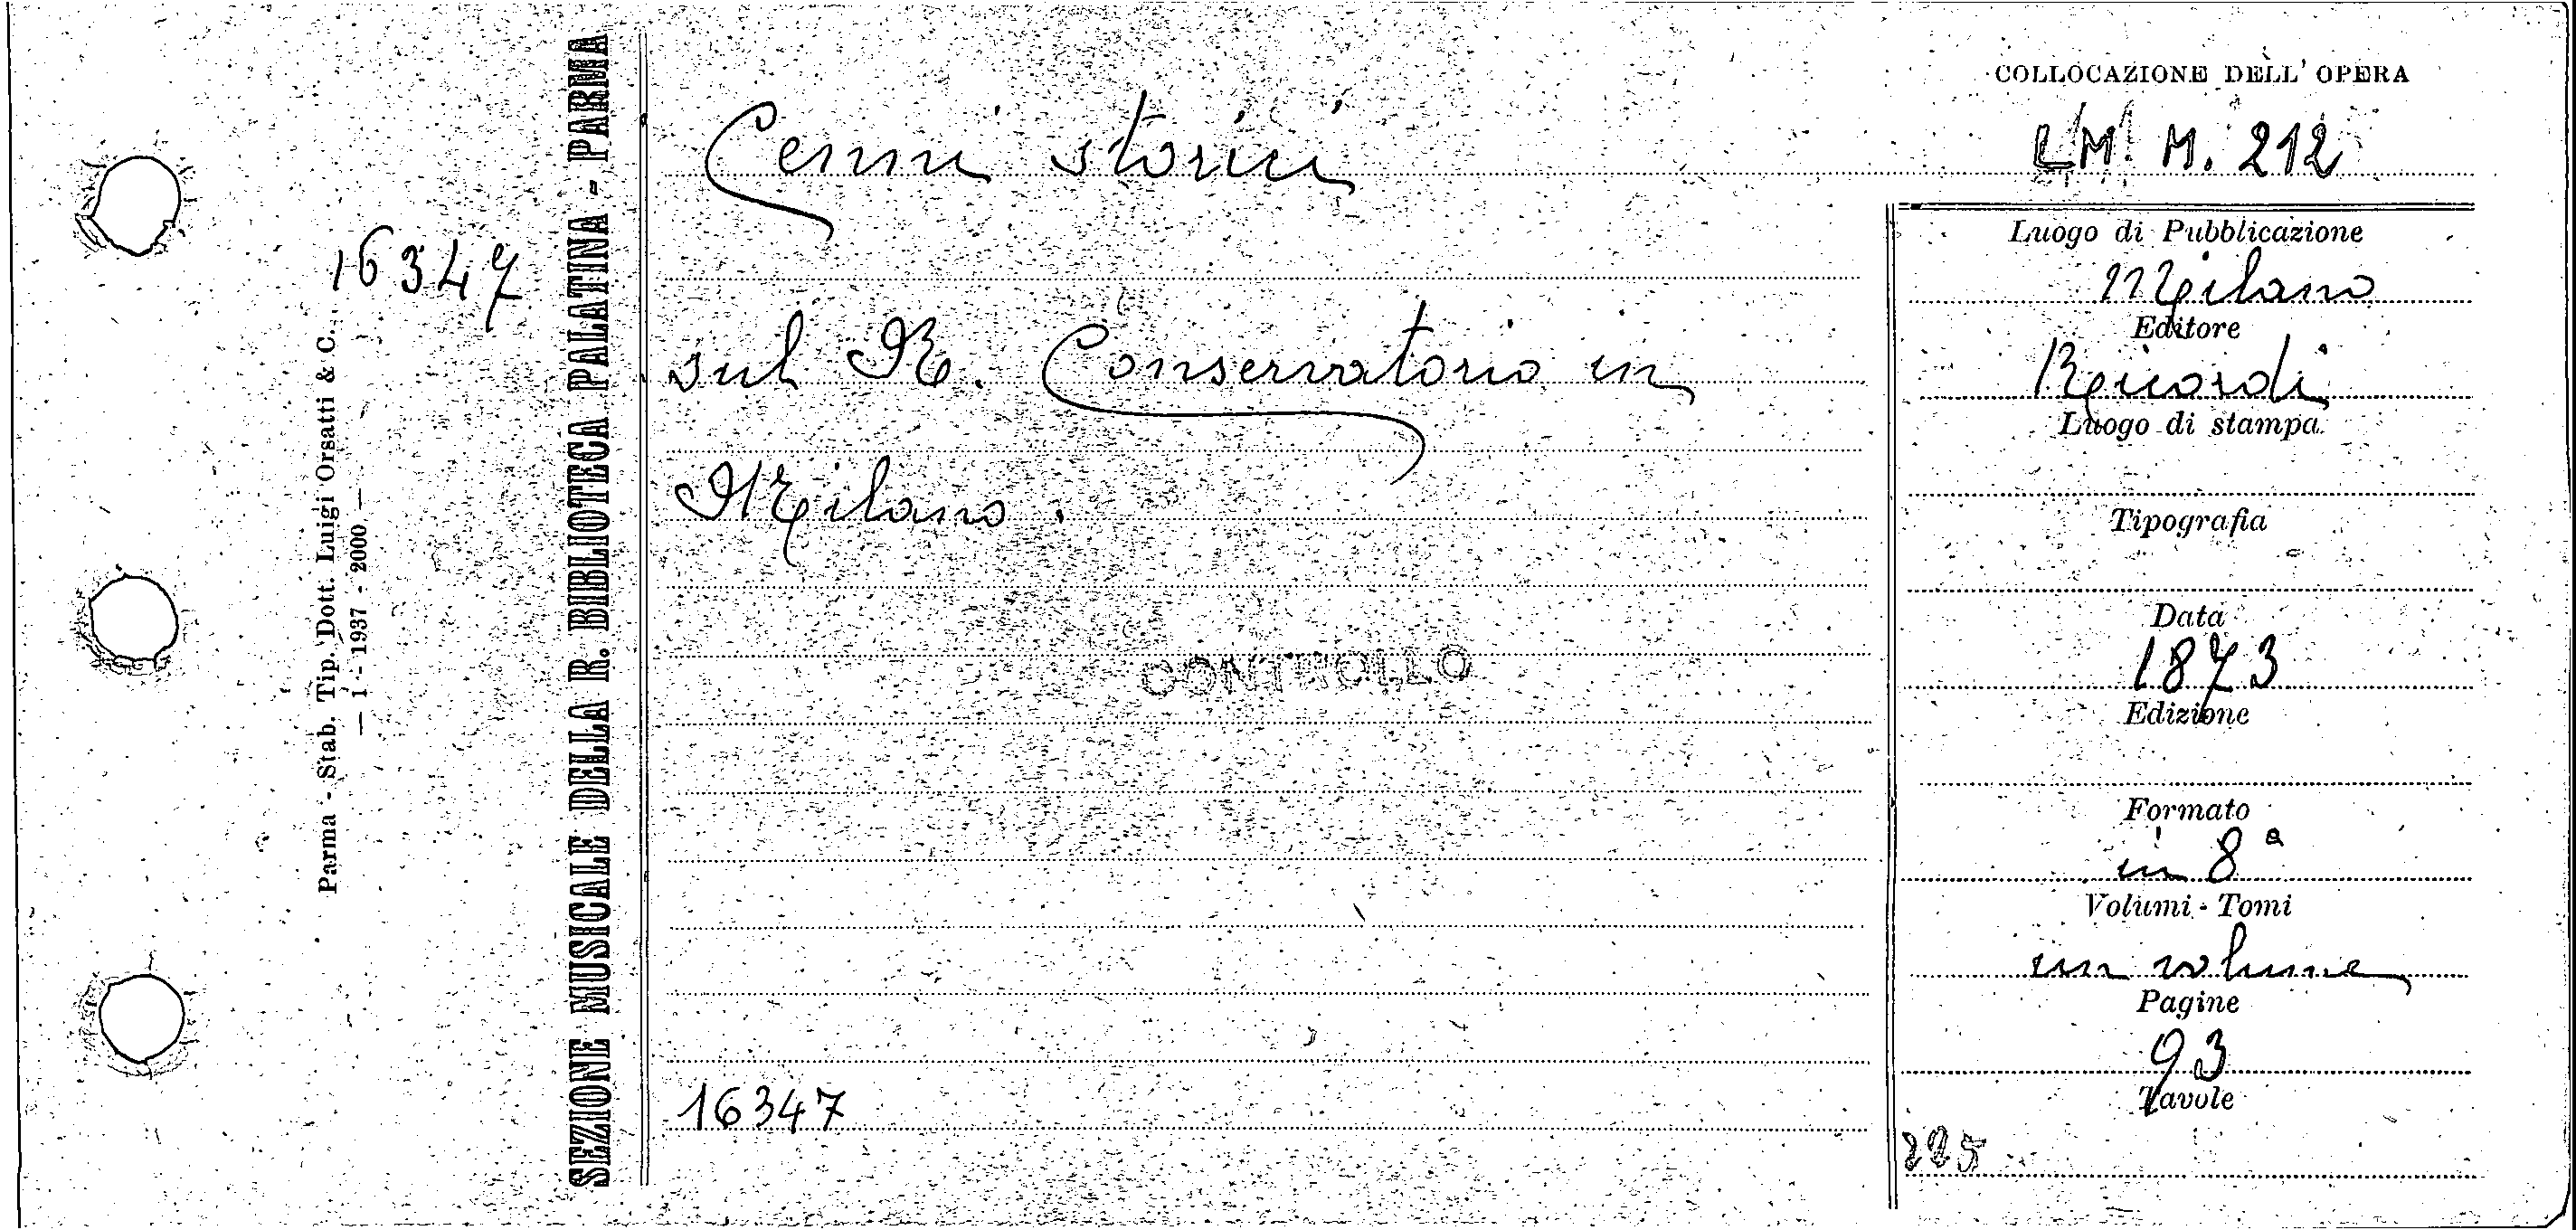 COLLOCAZIONE DELL' OPERA
Cenni storici
LM. M. 212
16347
sul R. Conservatorio in
Milano.
CONTROLLO
16347
Luogo di Pubblicazione
Milano
Editore
Ricordi
Luogo di stampa
Tipografia
Data
1873
Edizione
Formato
in 8ª
Volumi - Tomi
un volume
Pagine
93
Tavole
225
SEZIONE MUSICALE DELLA R. BIBLIOTECA PALATINA - PARMA
Parma - Stab. Tip. Dott. Luigi Orsatti & C.
— 1 - 1937 - 2000 —